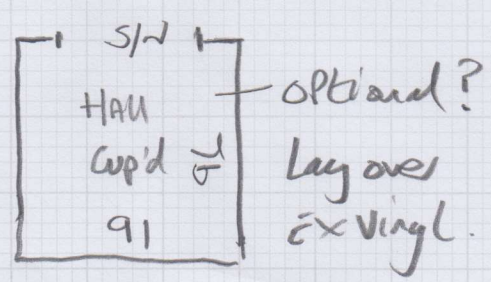 S/N
HAll
Cup'd
91
Optional?
Lay over
Ex Vinyl.